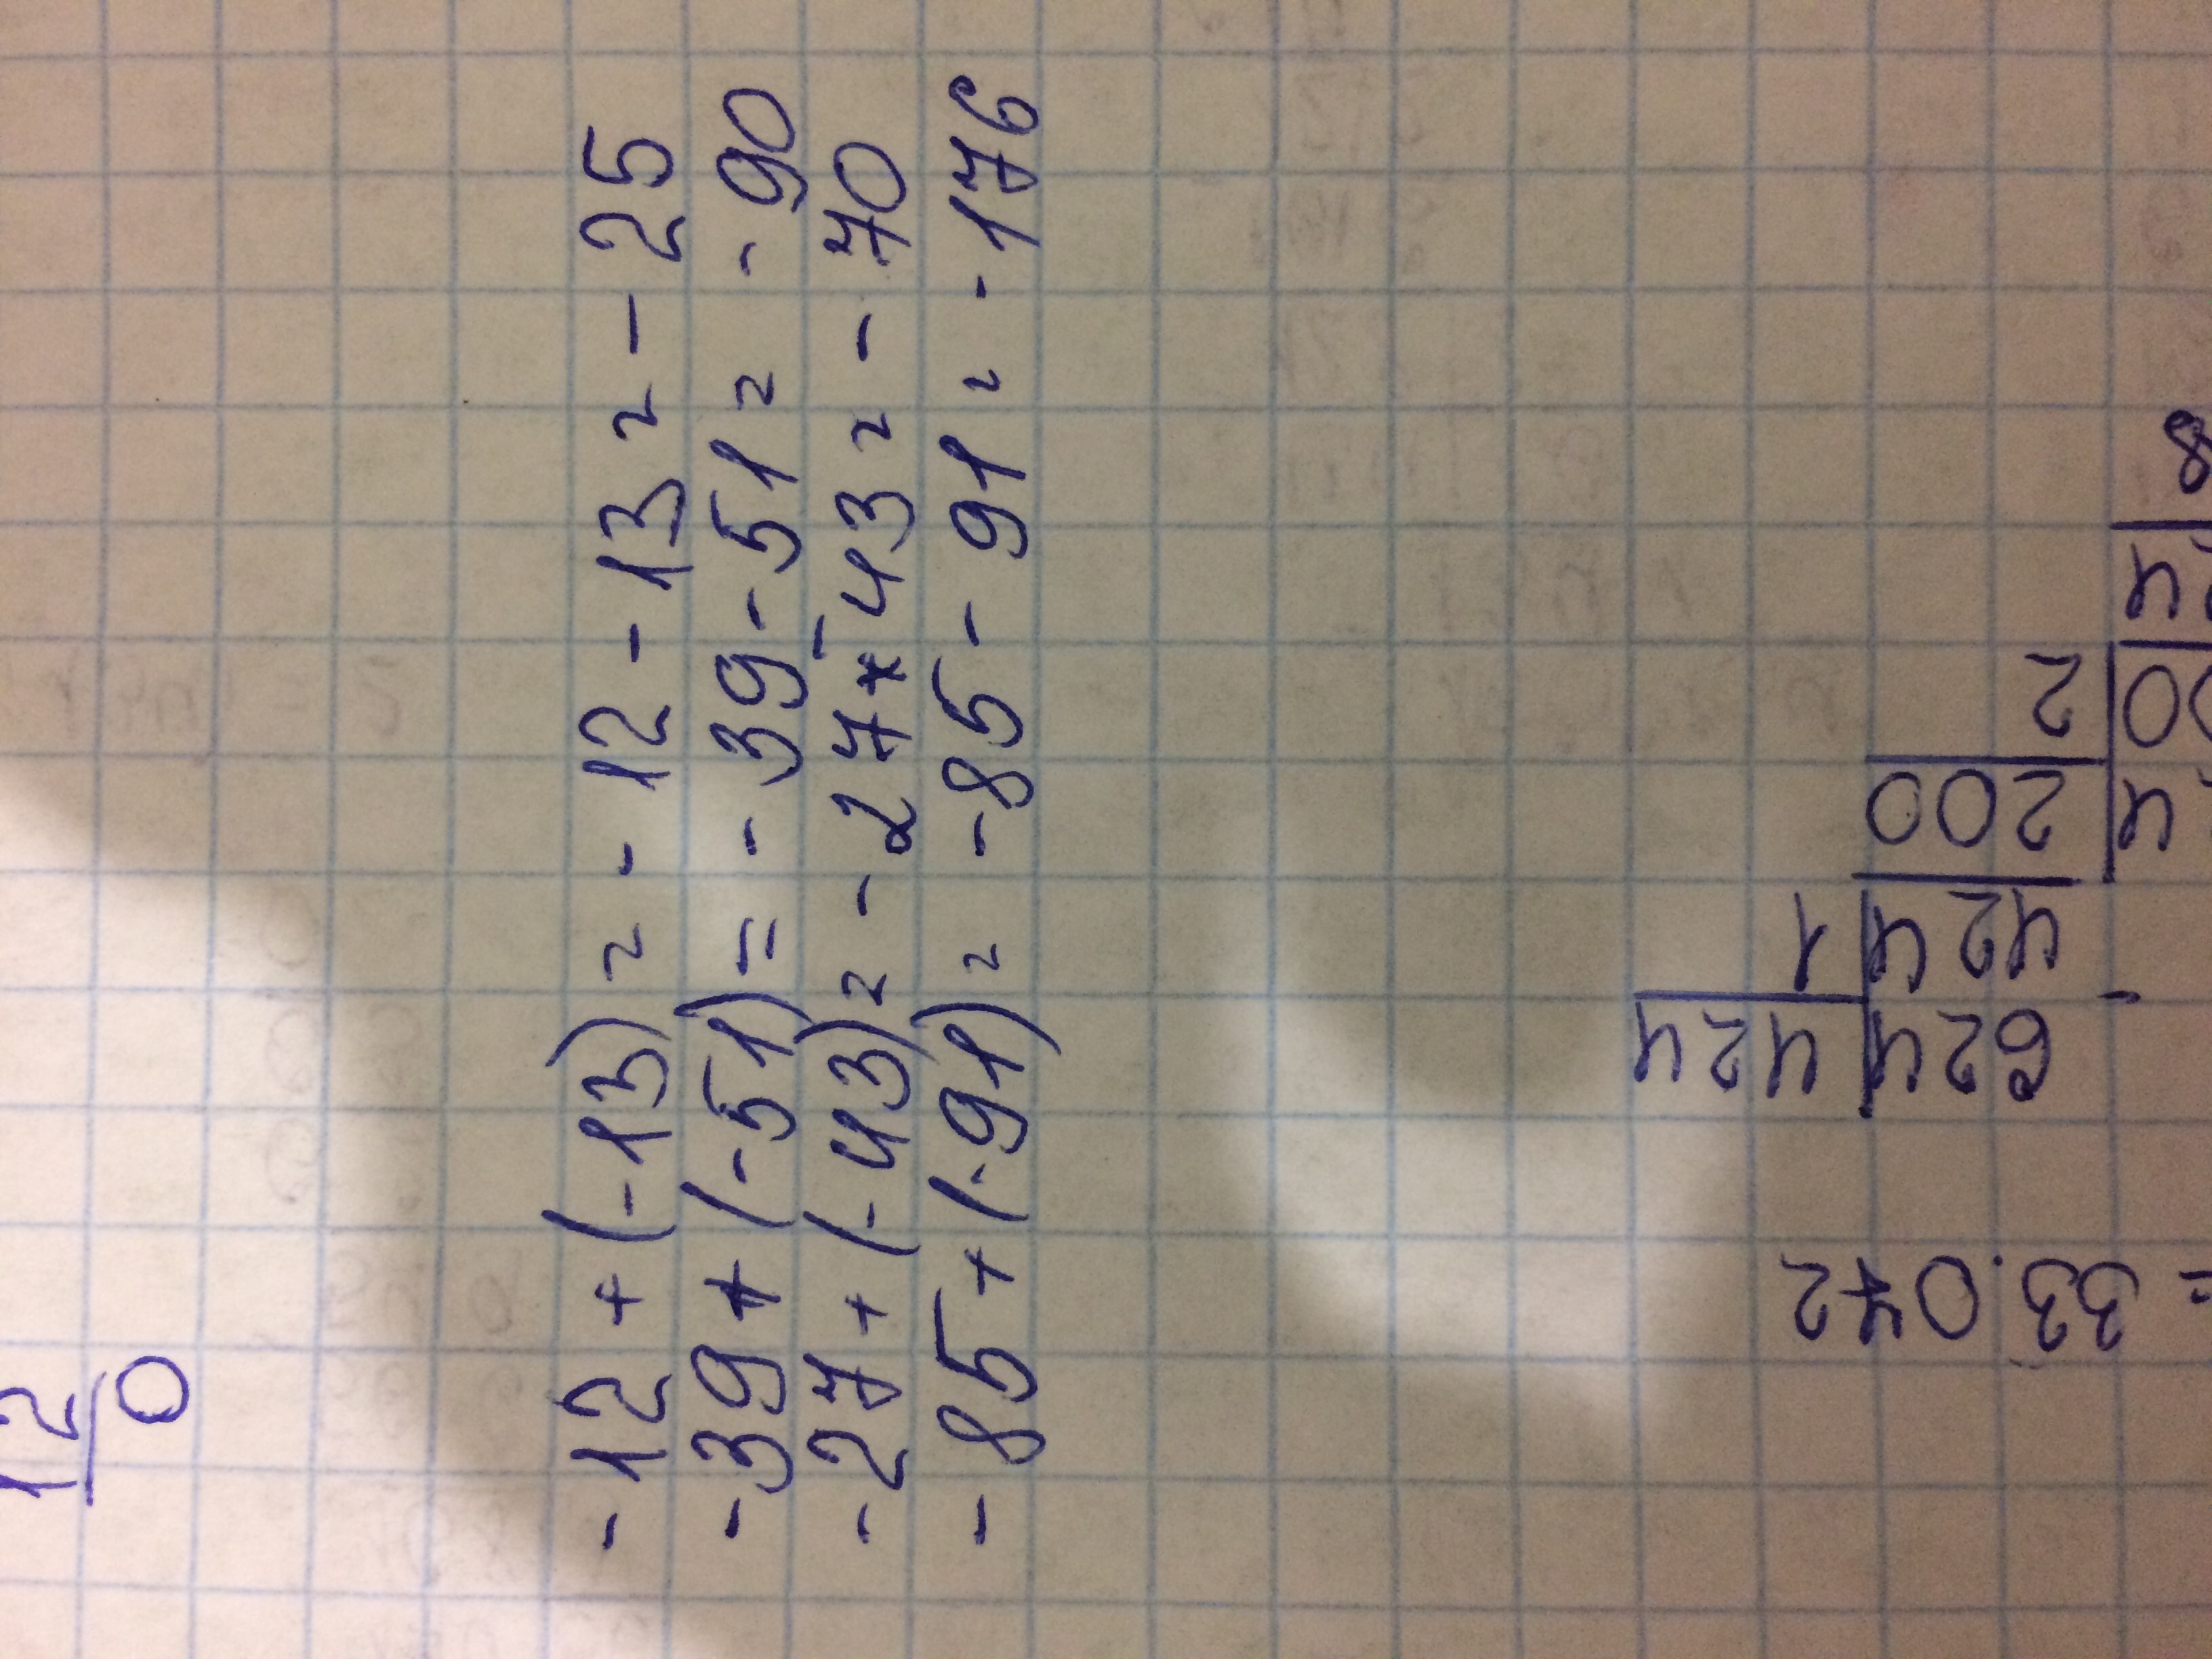 12
0
-12 + (-13) = - 12 - 13 = - 25
-39 + (-51) = - 39 - 51 = - 90
-27 + (-43) = - 27 - 43 = - 70
- 85 + (-91) = - 85 - 91 = - 176
= 33.072
624 | 424
424 | 1
200 | 2
8